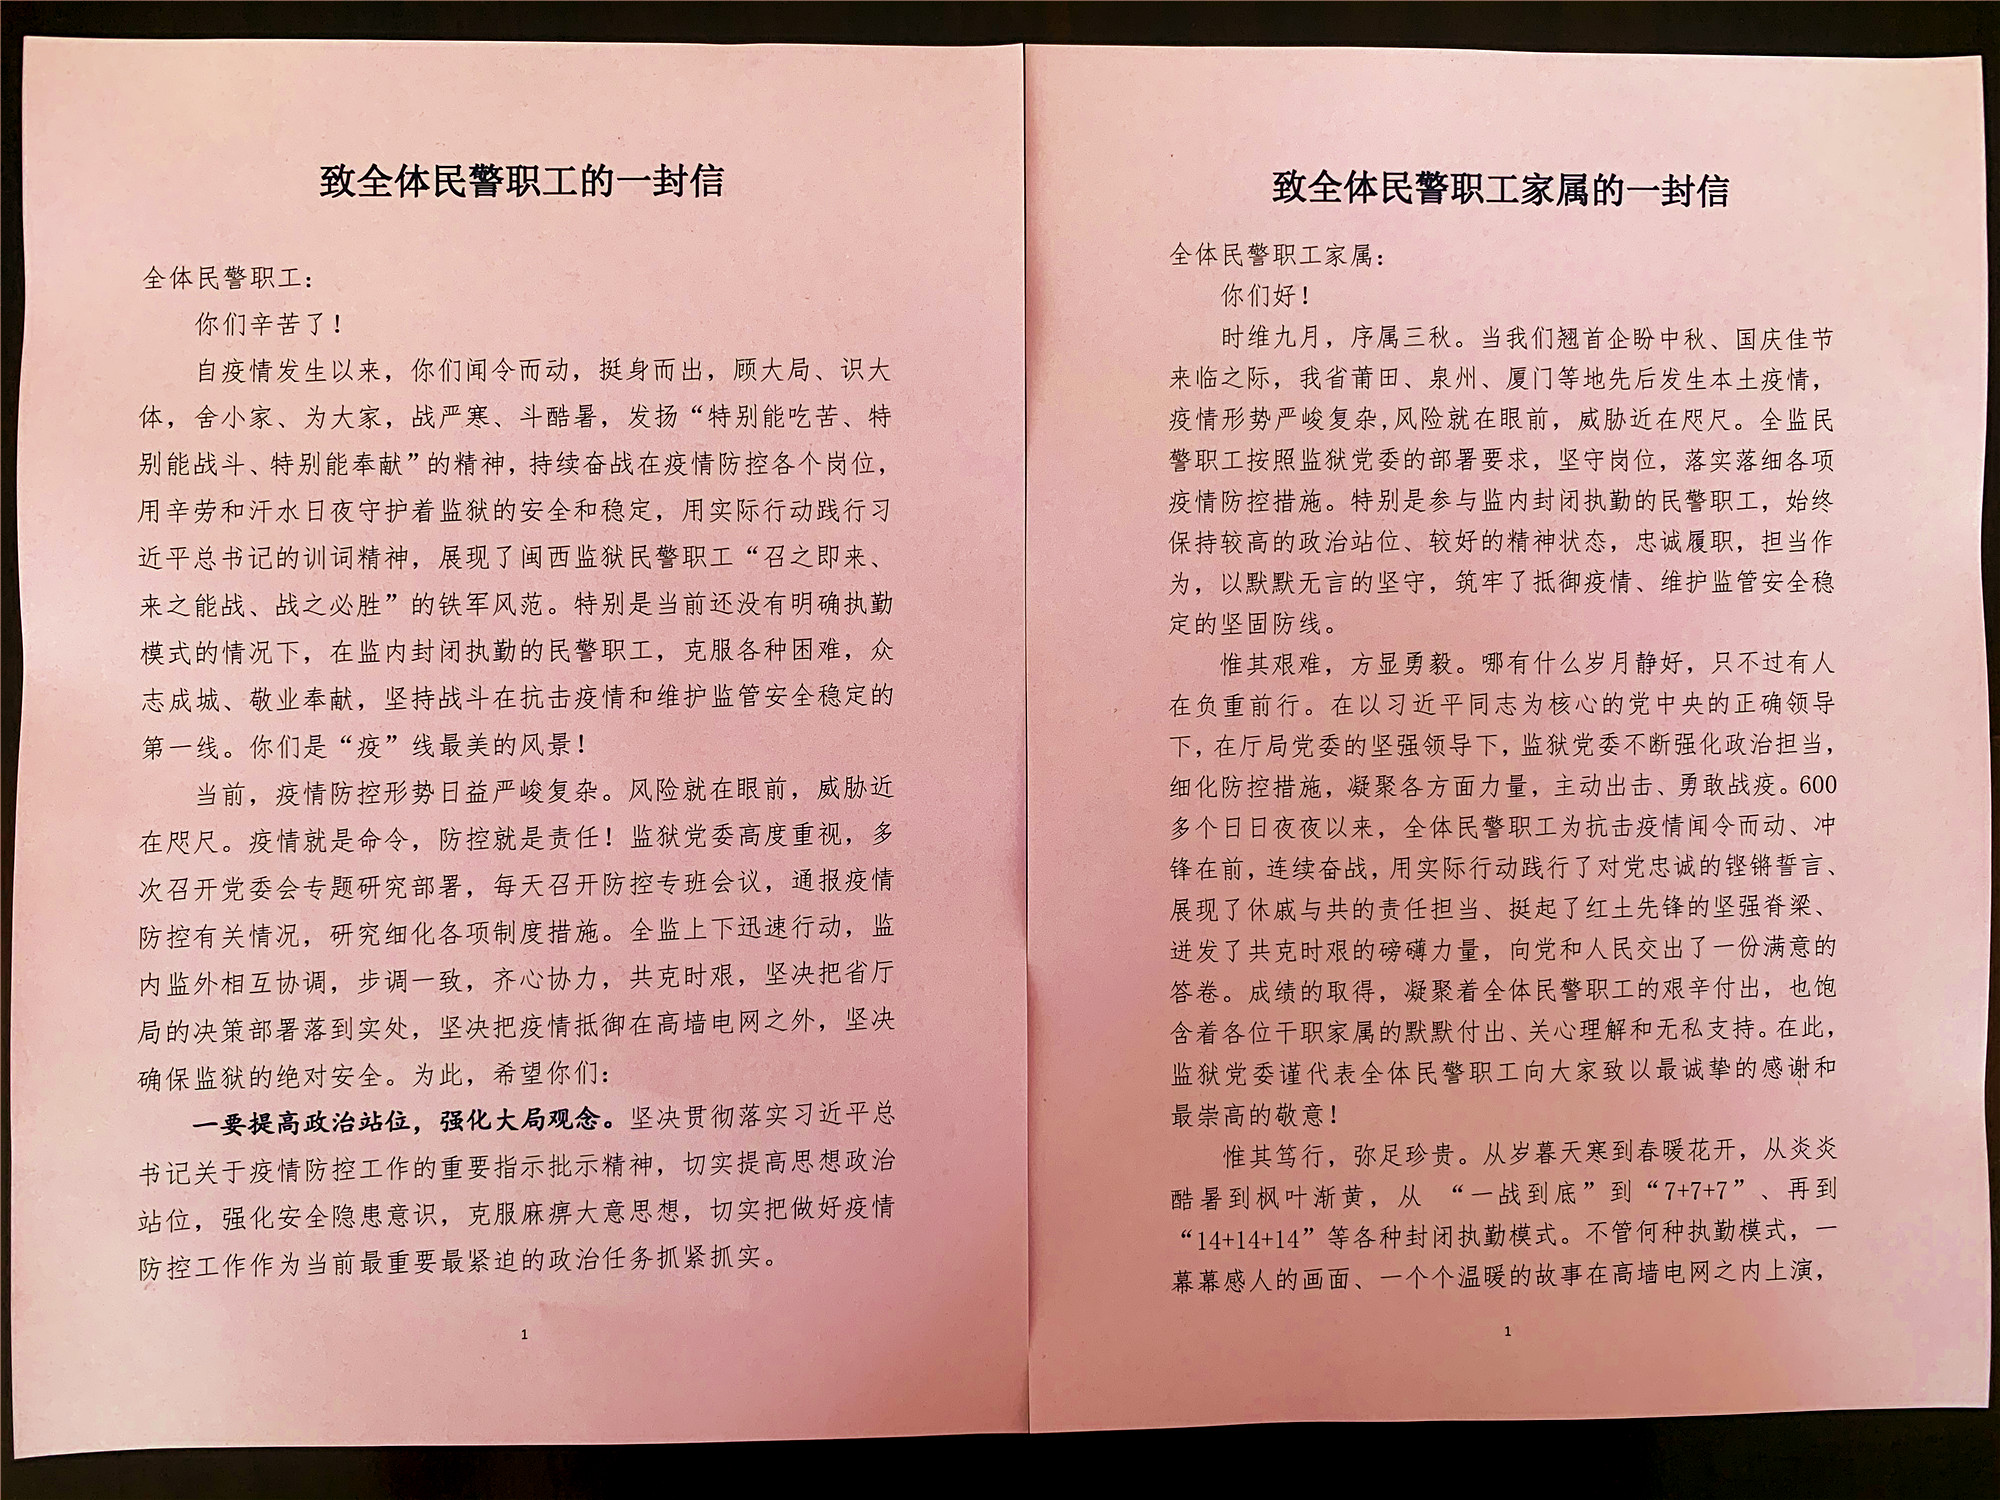 致全体民警职工的一封信
全体民警职工：
你们辛苦了！
自疫情发生以来，你们闻令而动，挺身而出，顾大局、识大
体，舍小家、为大家，战严寒、斗酷暑，发扬“特别能吃苦、特
别能战斗、特别能奉献”的精神，持续奋战在疫情防控各个岗位，
用辛劳和汗水日夜守护着监狱的安全和稳定，用实际行动践行习
近平总书记的训词精神，展现了闽西监狱民警职工“召之即来、
来之能战、战之必胜”的铁军风范。特别是当前还没有明确执勤
模式的情况下，在监内封闭执勤的民警职工，克服各种困难，众
志成城、敬业奉献，坚持战斗在抗击疫情和维护监管安全稳定的
第一线。你们是“疫”线最美的风景！
当前，疫情防控形势日益严峻复杂。风险就在眼前，威胁近
在咫尺。疫情就是命令，防控就是责任！监狱党委高度重视，多
次召开党委会专题研究部署，每天召开防控专班会议，通报疫情
防控有关情况，研究细化各项制度措施。全监上下迅速行动，监
内监外相互协调，步调一致，齐心协力，共克时艰，坚决把省厅
局的决策部署落到实处，坚决把疫情抵御在高墙电网之外，坚决
确保监狱的绝对安全。为此，希望你们：
一要提高政治站位，强化大局观念。坚决贯彻落实习近平总
书记关于疫情防控工作的重要指示批示精神，切实提高思想政治
站位，强化安全隐患意识，克服麻痹大意思想，切实把做好疫情
防控工作作为当前最重要最紧迫的政治任务抓紧抓实。
1
致全体民警职工家属的一封信
全体民警职工家属：
你们好！
时维九月，序属三秋。当我们翘首企盼中秋、国庆佳节
来临之际，我省莆田、泉州、厦门等地先后发生本土疫情，
疫情形势严峻复杂,风险就在眼前，威胁近在咫尺。全监民
警职工按照监狱党委的部署要求，坚守岗位，落实落细各项
疫情防控措施。特别是参与监内封闭执勤的民警职工，始终
保持较高的政治站位、较好的精神状态，忠诚履职，担当作
为，以默默无言的坚守，筑牢了抵御疫情、维护监管安全稳
定的坚固防线。
惟其艰难，方显勇毅。哪有什么岁月静好，只不过有人
在负重前行。在以习近平同志为核心的党中央的正确领导
下，在厅局党委的坚强领导下，监狱党委不断强化政治担当，
细化防控措施，凝聚各方面力量，主动出击、勇敢战疫。600
多个日日夜夜以来，全体民警职工为抗击疫情闻令而动、冲
锋在前，连续奋战，用实际行动践行了对党忠诚的铿锵誓言、
展现了休戚与共的责任担当、挺起了红土先锋的坚强脊梁、
迸发了共克时艰的磅礴力量，向党和人民交出了一份满意的
答卷。成绩的取得，凝聚着全体民警职工的艰辛付出，也饱
含着各位干职家属的默默付出、关心理解和无私支持。在此，
监狱党委谨代表全体民警职工向大家致以最诚挚的感谢和
最崇高的敬意！
惟其笃行，弥足珍贵。从岁暮天寒到春暖花开，从炎炎
酷暑到枫叶渐黄，从 “一战到底”到“7+7+7”、再到
“14+14+14”等各种封闭执勤模式。不管何种执勤模式，一
幕幕感人的画面、一个个温暖的故事在高墙电网之内上演，
1